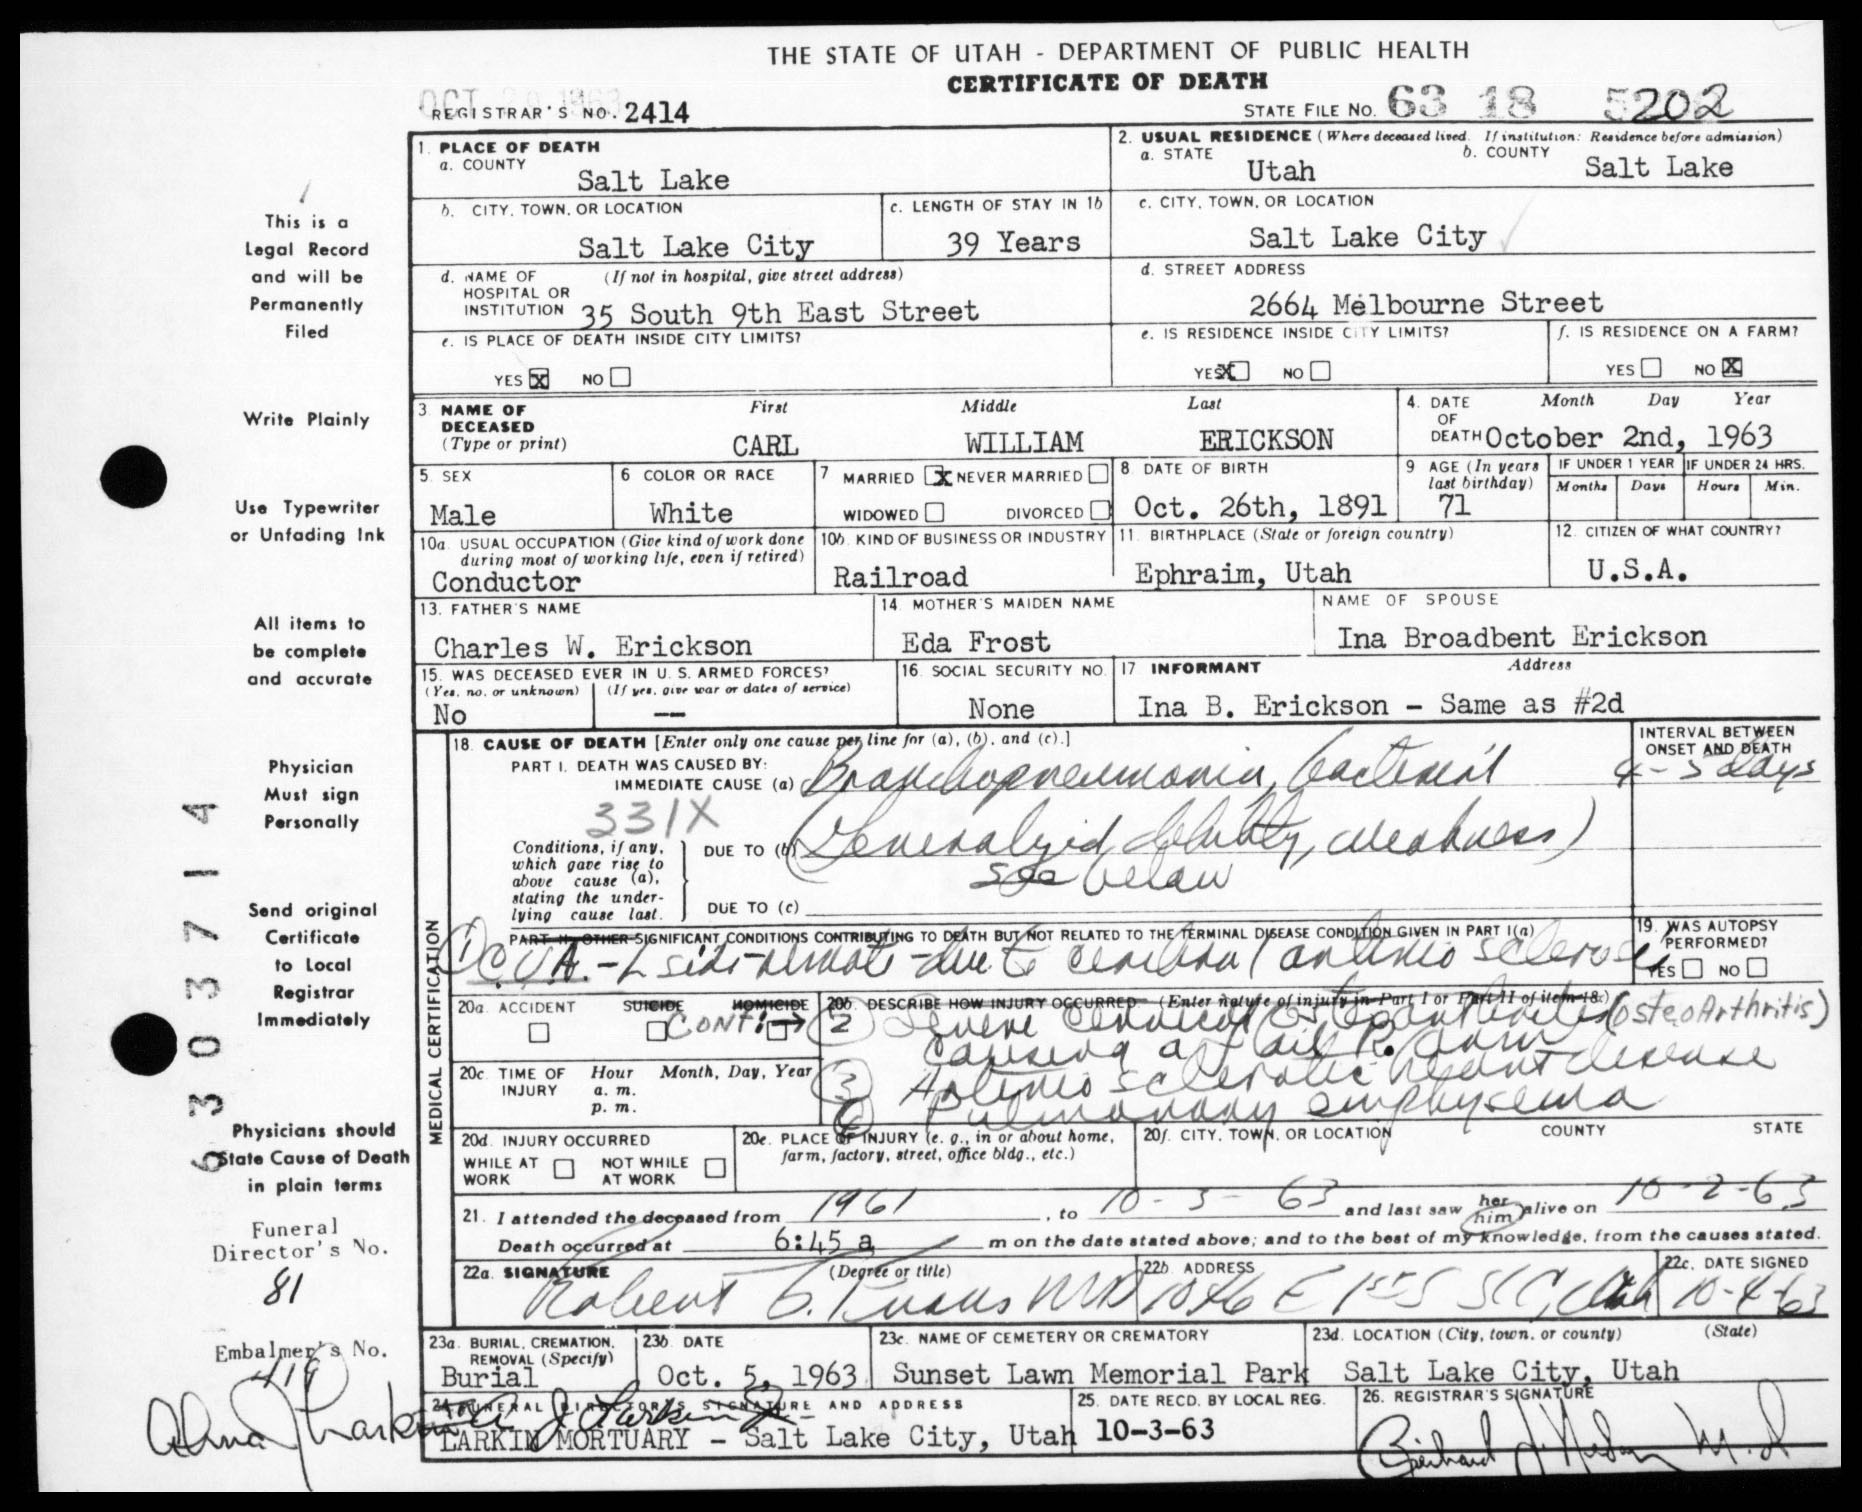 THE STATE OF UTAH - DEPARTMENT OF PUBLIC HEALTH
CERTIFICATE OF DEATH
REGISTRAR'S NO. 2414
STATE FILE NO. 63 18 5202
1. PLACE OF DEATH
a. COUNTY
Salt Lake
2. USUAL RESIDENCE (Where deceased lived. If institution: Residence before admission)
a. STATE Utah
b. COUNTY Salt Lake
b. CITY, TOWN, OR LOCATION
Salt Lake City
c. LENGTH OF STAY IN 1b
39 Years
c. CITY, TOWN, OR LOCATION
Salt Lake City
d. NAME OF HOSPITAL OR INSTITUTION (If not in hospital, give street address)
35 South 9th East Street
d. STREET ADDRESS
2664 Melbourne Street
e. IS PLACE OF DEATH INSIDE CITY LIMITS?
YES X NO
e. IS RESIDENCE INSIDE CITY LIMITS?
YES X NO
f. IS RESIDENCE ON A FARM?
YES NO X
3. NAME OF DECEASED (Type or print)
First Middle Last
CARL WILLIAM ERICKSON
4. DATE OF DEATH Month Day Year
October 2nd, 1963
5. SEX
Male
6 COLOR OR RACE
White
7 MARRIED X NEVER MARRIED
WIDOWED DIVORCED
8 DATE OF BIRTH
Oct. 26th, 1891
9 AGE (In years last birthday)
71
IF UNDER 1 YEAR
Months Days
IF UNDER 24 HRS.
Hours Min.
10a. USUAL OCCUPATION (Give kind of work done during most of working life, even if retired)
Conductor
10b. KIND OF BUSINESS OR INDUSTRY
Railroad
11. BIRTHPLACE (State or foreign country)
Ephraim, Utah
12. CITIZEN OF WHAT COUNTRY?
U.S.A.
13. FATHER'S NAME
Charles W. Erickson
14. MOTHER'S MAIDEN NAME
Eda Frost
NAME OF SPOUSE
Ina Broadbent Erickson
15. WAS DECEASED EVER IN U.S. ARMED FORCES?
(Yes, no, or unknown) (If yes, give war or dates of service)
No --
16. SOCIAL SECURITY NO.
None
17 INFORMANT Address
Ina B. Erickson - Same as #2d
MEDICAL CERTIFICATION
18. CAUSE OF DEATH [Enter only one cause per line for (a), (b), and (c).]
INTERVAL BETWEEN ONSET AND DEATH
PART I. DEATH WAS CAUSED BY:
IMMEDIATE CAUSE (a) Bronchopneumonia, bacterial 4-5 days
331X
Conditions, if any, which gave rise to above cause (a), stating the underlying cause last.
DUE TO (b) (Generalized debility, weakness)
see below
DUE TO (c)
PART II. OTHER SIGNIFICANT CONDITIONS CONTRIBUTING TO DEATH BUT NOT RELATED TO THE TERMINAL DISEASE CONDITION GIVEN IN PART I(a)
① C.V.A. - L side - remote - due to cerebral arteriosclerosis
19. WAS AUTOPSY PERFORMED?
YES NO
20a. ACCIDENT SUICIDE HOMICIDE
CONT. →
20b. DESCRIBE HOW INJURY OCCURRED (Enter nature of injury in Part I or Part II of item 18.)
② Severe cervical osteoarthritis (osteoArthritis)
causing a flail R. arm
③ Arteriosclerotic heart disease
④ Pulmonary emphysema
20c. TIME OF INJURY Hour Month, Day, Year
a. m.
p. m.
20d. INJURY OCCURRED
WHILE AT WORK NOT WHILE AT WORK
20e. PLACE OF INJURY (e. g., in or about home, farm, factory, street, office bldg., etc.)
20f. CITY, TOWN, OR LOCATION COUNTY STATE
21. I attended the deceased from 1961, to 10-3-63 and last saw her him alive on 10-2-63
Death occurred at 6:45 a m on the date stated above; and to the best of my knowledge, from the causes stated.
22a. SIGNATURE (Degree or title)
Robert G. Evans MD
22b. ADDRESS
1046 E 1st S SLC, Utah
22c. DATE SIGNED
10-4-63
23a. BURIAL, CREMATION, REMOVAL (Specify)
Burial
23b. DATE
Oct. 5, 1963
23c. NAME OF CEMETERY OR CREMATORY
Sunset Lawn Memorial Park
23d. LOCATION (City, town, or county) (State)
Salt Lake City, Utah
24. FUNERAL DIRECTOR'S SIGNATURE AND ADDRESS
LARKIN MORTUARY - Salt Lake City, Utah
25. DATE RECD. BY LOCAL REG.
10-3-63
26. REGISTRAR'S SIGNATURE
This is a
Legal Record
and will be
Permanently
Filed
Write Plainly
Use Typewriter
or Unfading Ink
All items to
be complete
and accurate
Physician
Must sign
Personally
Send original
Certificate
to Local
Registrar
Immediately
Physicians should
State Cause of Death
in plain terms
Funeral
Director's No.
81
Embalmer's No.
419
6303714